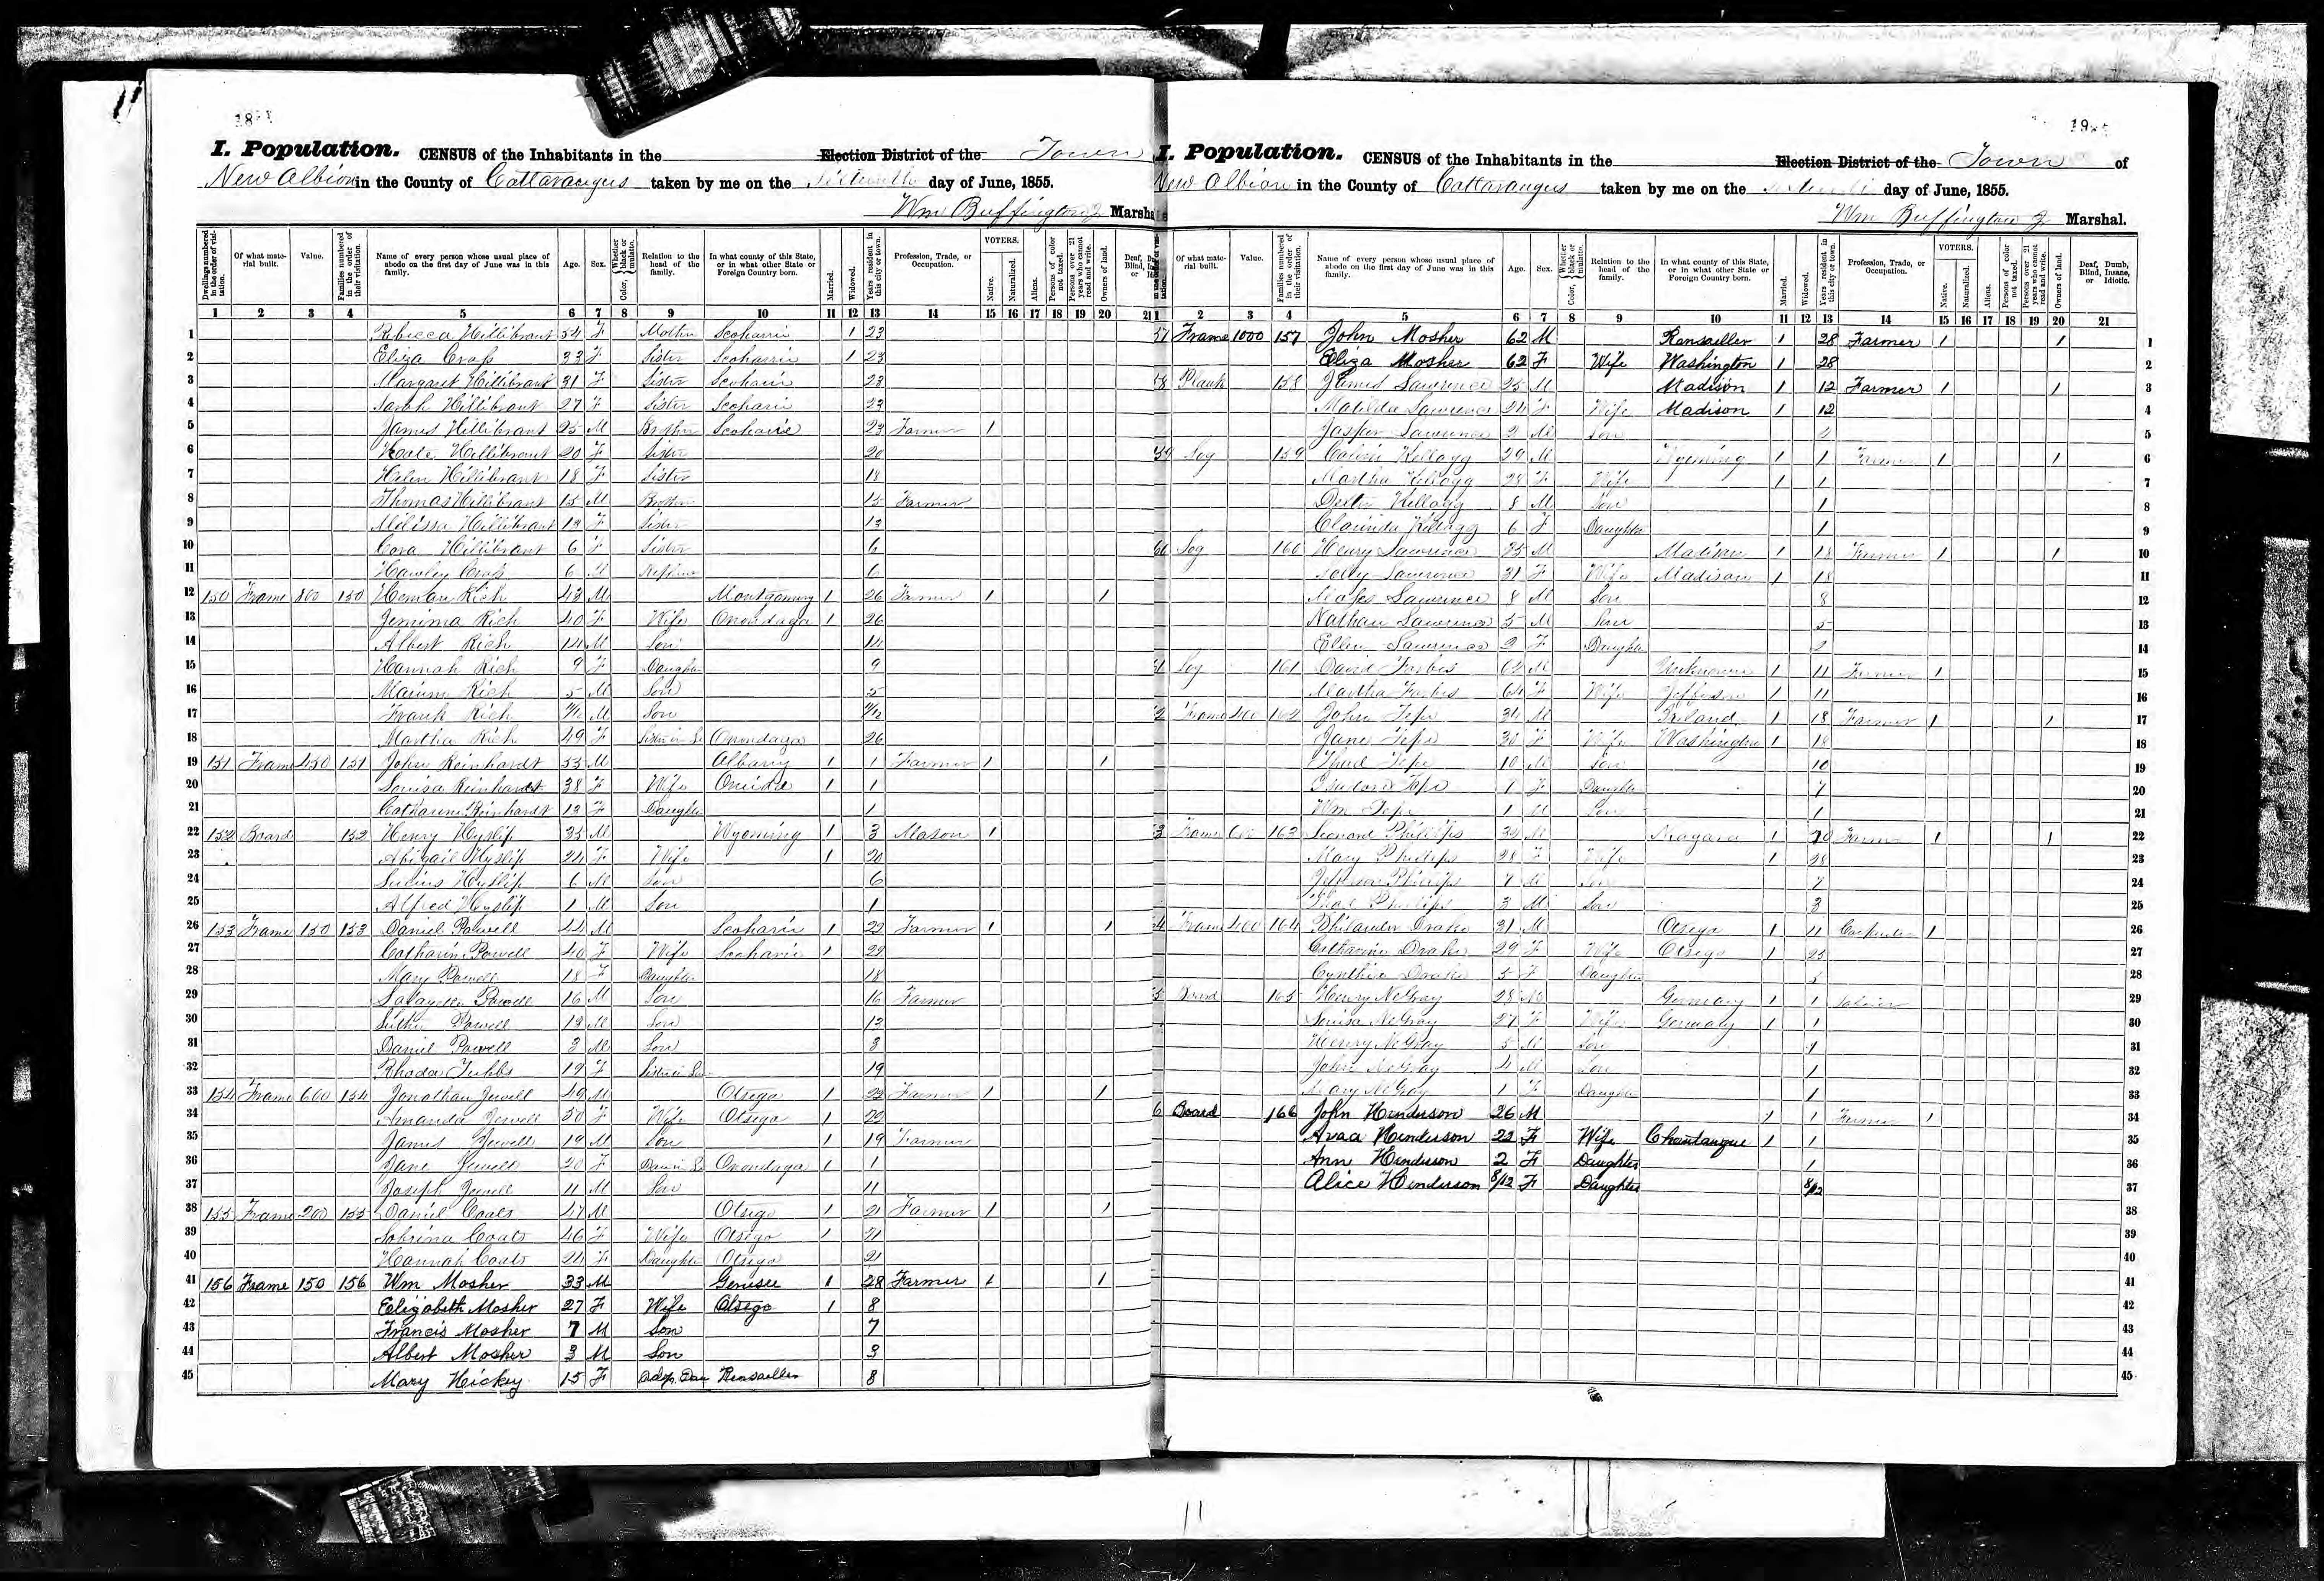 I. Population. CENSUS of the Inhabitants in the Election District of the Town
New Albion in the County of Cattaraugus taken by me on the day of June, 1855.
Wm Buffington Marshal
Dwellings numbered in the order of visitation. Of what material built. Value. Families numbered in the order of their visitation. Name of every person whose usual place of abode on the first day of June was in this family. Age. Sex. Color, Whether black or mulatto. Relation to the head of the family. In what county of this State, or in what other State or Foreign Country born. Married. Widowed. Years resident in this city or town. Profession, Trade, or Occupation. VOTERS. Native. Naturalized. Aliens. Persons of color not taxed. Persons over 21 years who cannot read and write. Owners of land. Deaf, Blind, or
1 2 3 4 5 6 7 8 9 10 11 12 13 14 15 16 17 18 19 20 21
1 Rebecca Hillibrant 54 F Mother Scoharri 1 23
2 Eliza Crass 33 F Sister Scoharrie 1 23
3 Margaret Hillibrant 31 F Sister Scoharie 23
4 Sarah Hillibrant 27 F Sister Scoharie 23
5 James Hillibrant 25 M Brother Scoharie 23 Farmer 1
6 Hillibrant 20 F Sister 20
7 Helen Hillibrant 18 F Sister 18
8 Thomas Hillibrant 15 M Brother 15 Farmer
9 Milissa Hillibrant 13 F Sister 13
10 Cora Hillibrant 6 F Sister 6
11 Hawley Crass 6 M 6
12 150 Frame 800 150 Heman Rich 43 M Montgomery 1 26 Farmer 1 1
13 Jemima Rich 40 F Wife Onondaga 1 26
14 Albert Rich 14 M Son 14
15 Hannah Rich 9 F Daughter 9
16 Rich 5 M Son 5
17 Frank Rich M Son
18 Martha Rich 49 F Sister in Onondaga 26
19 151 Frame 450 151 John Reinhardt 53 M Albany 1 1 Farmer 1 1
20 Louisa Reinhardt 38 F Wife Oneida 1 1
21 Catharine Reinhardt 13 F Daughter 1
22 152 Board 152 Henry Hyslip 35 M Wyoming 1 3 Mason 1
23 Abigail Hyslip 24 F Wife 1 20
24 Lucius Hyslip 6 M Son 6
25 Alfred Hyslip 1 M Son 1
26 153 Frame 150 153 Daniel Powell 44 M Scoharie 1 22 Farmer 1 1
27 Catharine Powell 40 F Wife Scoharie 1 22
28 Mary Powell 18 F Daughter 18
29 Lafayette Powell 16 M Son 16 Farmer
30 Luther Powell 13 M Son 13
31 Daniel Powell 3 M Son 3
32 Rhoda Tubbs 19 F Sister in 19
33 154 Frame 600 154 Jonathan Jewell 49 M Otsego 1 22 Farmer 1 1
34 Amanda Jewell 50 F Wife Otsego 1 22
35 James Jewell 19 M Son 1 19 Farmer
36 Jane Jewell 20 F Onondaga 1 1
37 Joseph Jewell 11 M Son 11
38 155 Frame 200 155 Daniel Coats 47 M Otsego 1 21 Farmer 1 1
39 Sabrina Coats 46 F Wife Otsego 1 21
40 Hannah Coats 24 F Daughter Otsego 21
41 156 Frame 150 156 Wm Mosher 33 M Genisee 1 28 Farmer 1 1
42 Elizabeth Mosher 27 F Wife Otsego 1 8
43 Francis Mosher 7 M Son 7
44 Albert Mosher 3 M Son 3
45 Mary Hickey 15 F Adop. Dau Rensaeller 8
I. Population. CENSUS of the Inhabitants in the Election District of the Town of
New Albion in the County of Cattaraugus taken by me on the day of June, 1855.
Wm Buffington Marshal.
Of what material built. Value. Families numbered in the order of their visitation. Name of every person whose usual place of abode on the first day of June was in this family. Age. Sex. Color, Whether black or mulatto. Relation to the head of the family. In what county of this State, or in what other State or Foreign Country born. Married. Widowed. Years resident in this city or town. Profession, Trade, or Occupation. VOTERS. Native. Naturalized. Aliens. Persons of color not taxed. Persons over 21 years who cannot read and write. Owners of land. Deaf, Dumb, Blind, Insane, or Idiotic.
1 2 3 4 5 6 7 8 9 10 11 12 13 14 15 16 17 18 19 20 21
57 Frame 1000 157 John Mosher 62 M Rensaeller 1 28 Farmer 1 1 1
Eliza Mosher 62 F Wife Washington 1 28 2
58 Plank 158 James Lawrence 25 M Madison 1 12 Farmer 1 1 3
Matilda Lawrence 24 F Wife Madison 1 12 4
Jasper Lawrence 2 M Son 2 5
59 Log 159 Kellogg 29 M Wyoming 1 1 Farmer 1 1 6
Martha Kellogg 28 F Wife 1 1 7
Kellogg 8 M Son 1 8
Clarinda Kellogg 6 F Daughter 1 9
60 Log 160 Henry Lawrence 35 M Madison 1 18 Farmer 1 1 10
Lawrence 31 F Wife Madison 1 18 11
Moses Lawrence 8 M Son 8 12
Nathan Lawrence 5 M Son 5 13
Ellen Lawrence 2 F Daughter 2 14
Log 161 David Forbes 62 M Unknown 1 11 Farmer 1 15
Martha Forbes 64 F Wife Jefferson 1 11 16
Frame 400 162 John Tefs 34 M Ireland 1 18 Farmer 1 1 17
Jane 30 F Wife Washington 1 18 18
10 M Son 10 19
7 F Daughter 7 20
Wm 1 M Son 1 21
Frame 600 163 Leonard Phillips 34 M Niagara 1 Farmer 1 1 22
Mary Phillips 28 F Wife 1 28 23
Phillips 7 M Son 7 24
Phillips 3 M Son 3 25
Frame 400 164 Philander Drake 31 M Otsego 1 11 Carpenter 1 26
Catharine Drake 29 F Wife Otsego 1 25 27
Cynthia Drake 5 F Daughter 5 28
165 Henry McGray 28 M Germany 1 1 29
Louisa McGray 27 F Wife Germany 1 1 30
Henry McGray 5 M Son 1 31
John McGray 4 M Son 1 32
Mary McGray 1 F Daughter 1 33
6 Board 166 John Henderson 26 M 1 1 Farmer 1 34
Henderson 22 F Wife Chautauque 1 1 35
Ann Henderson 2 F Daughter 1 36
Alice Henderson 8/12 F Daughter 8/12 37
38
39
40
41
42
43
44
45